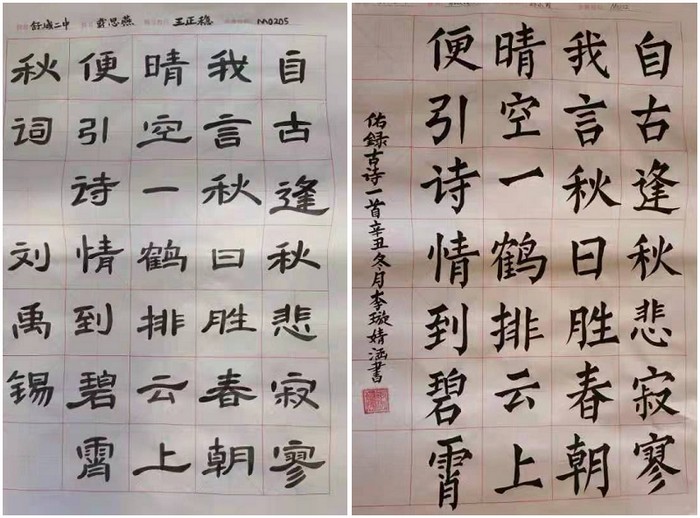 舒城二中 思燕 王正稳 M0205
自古逢秋悲寂寥
我言秋日胜春朝
晴空一鹤排云上
便引诗情到碧霄
秋词 刘禹锡
自古逢秋悲寂寥
我言秋日胜春朝
晴空一鹤排云上
便引诗情到碧霄
佑録古诗一首辛丑冬月李璇婧涵書